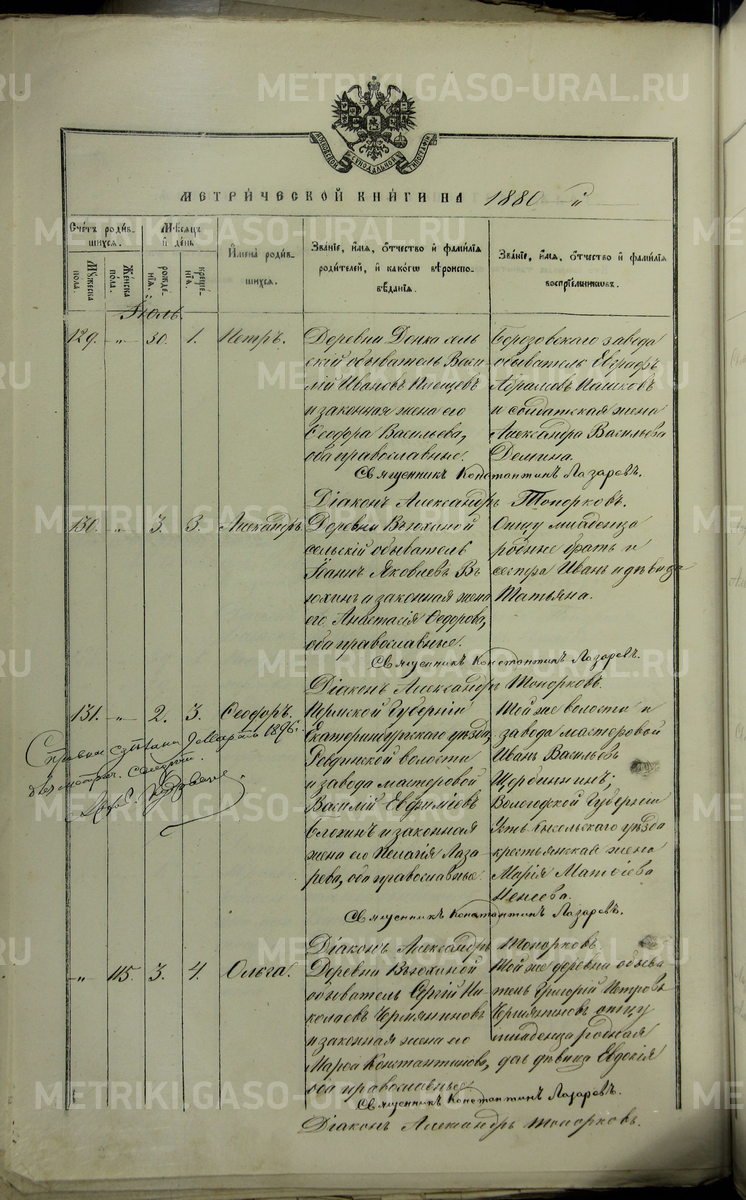 METRIKI.GASO-URAL.RU
МОСКОВСКОЙ СѴНОДАЛЬНОЙ ТИПОГРАФІИ
МЕТРИЧЕСКОЙ КНИГИ НА 1880 й
Счетъ родив-
шихся.
Мужеска
пола.
Женска
пола.
Мѣсяцъ
и день
рожде-
нія.
креще-
нія.
Имена родив-
шихся.
Званіе, имя, отчество и фамилія
родителей, и какого вѣроиспо-
вѣданія.
Званіе, имя, отчество и фамилія
воспріемниковъ.
Іюль.
129. „ 30. 1. Петръ.
сель
скій обыватель Васи-
лій Ивановъ
и законная жена его
Ѳеодора Васильева,
оба православные.
Березовскаго завода
обыватель Евграфъ
Абрамовъ Пашковъ
и солдатская жена
Александра Васильева
Демина.
Священникъ Константинъ Лазаревъ.
Діаконъ Александръ Топорковъ.
130. „ 3. 3. Александръ.
Деревни Вьюхиной
сельскій обыватель
Іоаннъ Яковлевъ Вь
юхинъ и законная жена
его Анастасія Ѳедорова,
оба православные.
Отцу младенца
родные братъ и
сестра Иванъ и дѣвица
Татьяна.
Священникъ Константинъ Лазаревъ.
Діаконъ Александръ Топорковъ.
131. „ 2. 3. Ѳеодоръ.
Справка сдѣлана 9 Марта 1896.
Пермской Губерніи
Екатеринбургскаго уѣзда,
Ревдинской волости
и завода мастеровой
Василій Евфиміевъ
и законная
жена его Пелагія Лаза
рева, оба православные
Той же волости и
завода мастеровой
Иванъ Васильевъ
Щербининъ;
Вологодской Губерніи
Усть-Сысольскаго уѣзда
крестьянская жена
Марія Матѳіева
Священникъ Константинъ Лазаревъ.
Діаконъ Александръ Топорковъ.
„ 115. 3. 4. Ольга.
Деревни Вьюхиной
обыватель Сергій Ни
колаевъ Чермяниновъ
и законная жена его
Марѳа Константинова,
оба православные
Той же деревни обыва
тель Григорій Петровъ
Чермяниновъ отцу
младенца родная
дѣвица Евдокія
Священникъ Константинъ Лазаревъ.
Діаконъ Александръ Топорковъ.